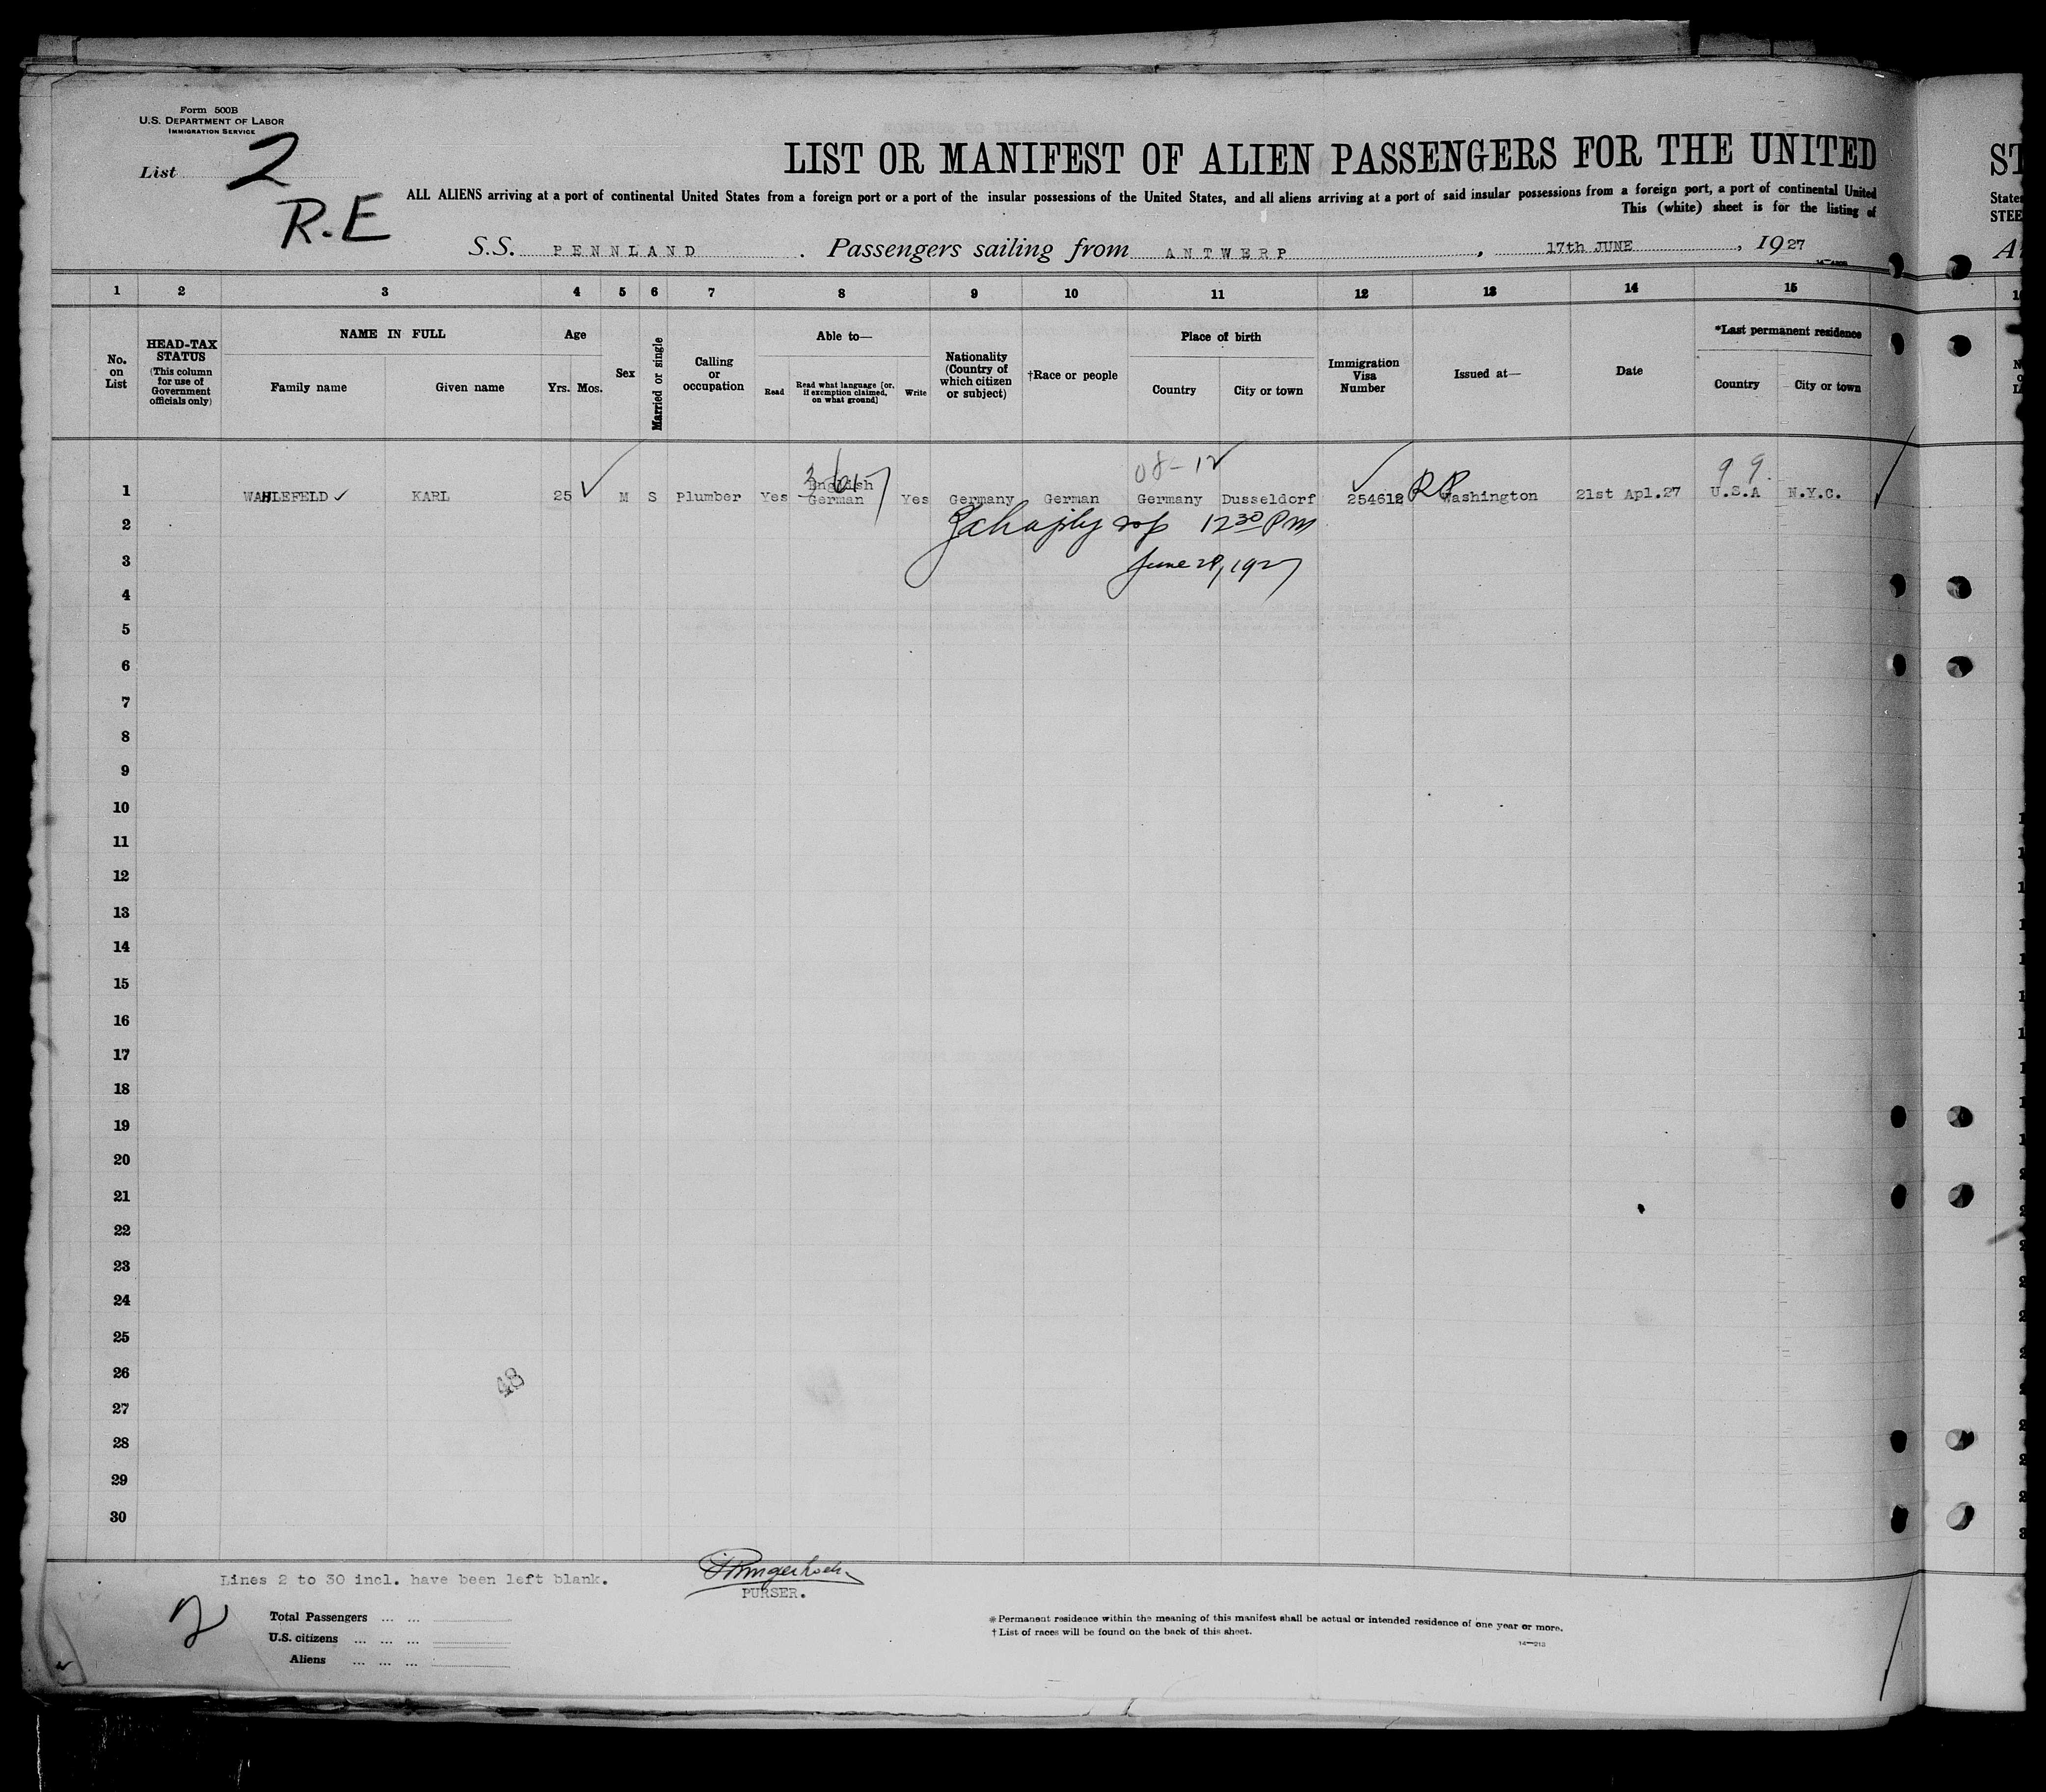 Form 500B
U.S. DEPARTMENT OF LABOR
IMMIGRATION SERVICE
List 2
R.E
LIST OR MANIFEST OF ALIEN PASSENGERS FOR THE UNITED
ALL ALIENS arriving at a port of continental United States from a foreign port or a port of the insular possessions of the United States, and all aliens arriving at a port of said insular possessions from a foreign port, a port of continental United
This (white) sheet is for the listing of
S.S. PENNLAND . Passengers sailing from ANTWERP , 17th JUNE , 1927
ST
States
STEE
1 2 3 4 5 6 7 8 9 10 11 12 13 14 15
No. on List
HEAD-TAX STATUS (This column for use of Government officials only)
NAME IN FULL
Family name Given name
Age
Yrs. Mos.
Sex
Married or single
Calling or occupation
Able to—
Read Read what language [or, if exemption claimed, on what ground] Write
Nationality (Country of which citizen or subject)
†Race or people
Place of birth
Country City or town
Immigration Visa Number
Issued at—
Date
*Last permanent residence
Country City or town
08-12
99.
1 WAHLEFELD ✓ KARL 25 ✓ M S Plumber Yes English German Yes Germany German Germany Dusseldorf 254612 RP Washington 21st Apl.27 U.S.A N.Y.C.
2 12 30 PM
3 June 28, 1927
4
5
6
7
8
9
10
11
12
13
14
15
16
17
18
19
20
21
22
23
24
25
26
27
28
29
30
48
Lines 2 to 30 incl. have been left blank.
PURSER.
2
Total Passengers ... ...
U.S. citizens ... ... ...
Aliens ... ... ...
*Permanent residence within the meaning of this manifest shall be actual or intended residence of one year or more.
†List of races will be found on the back of this sheet.
14—213